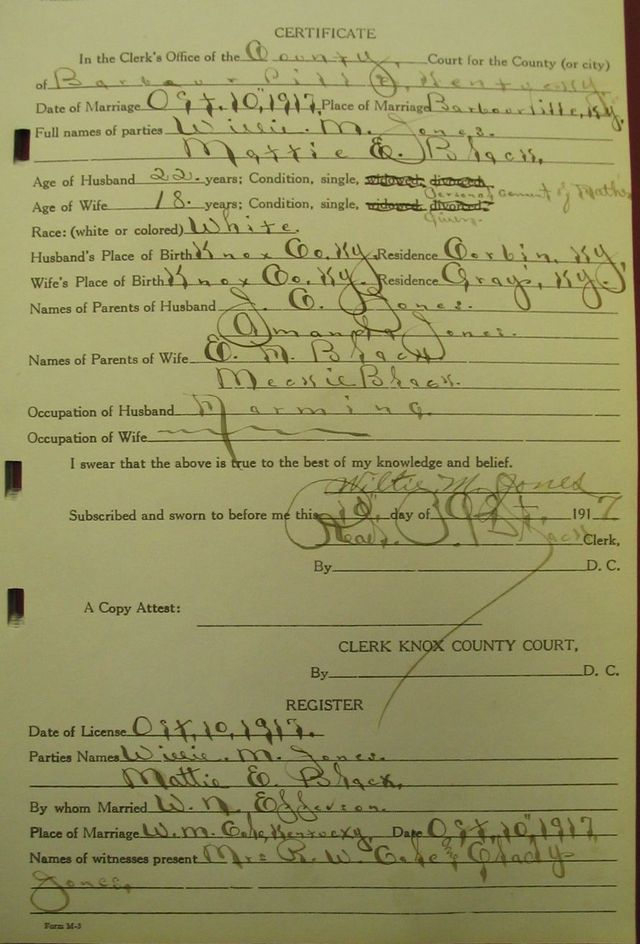 CERTIFICATE
In the Clerk's Office of the County, Court for the County (or city)
of Barbour
Date of Marriage Oct. 10", 1917, Place of Marriage Barbourville, Ky.
Full names of parties Willie. M. Jones.
Mattie E. Black,
Age of Husband 22. years; Condition, single, widowed, divorced, Personal consent of Mother
Age of Wife 18. years; Condition, single, widowed divorced. Given.
Race: (white or colored) White.
Husband's Place of Birth Knox Co. Ky. Residence Corbin, Ky,
Wife's Place of Birth Knox Co. Ky. Residence Grays, Ky.
Names of Parents of Husband J. C. Jones.
Amanda Jones.
Names of Parents of Wife E. M. Black
Black.
Occupation of Husband Farming.
Occupation of Wife
I swear that the above is true to the best of my knowledge and belief.
Willie M. Jones
Subscribed and sworn to before me this 10" day of Oct. 1917
Read. Black Clerk,
By D. C.
A Copy Attest:
CLERK KNOX COUNTY COURT,
By D. C.
REGISTER
Date of License Oct, 10, 1917.
Parties Names Willie. M. Jones.
Mattie E. Black,
By whom Married W. N.
Place of Marriage W. M. Date Oct. 10", 1917
Names of witnesses present Mrs R. W.
Jones,
Form M-3